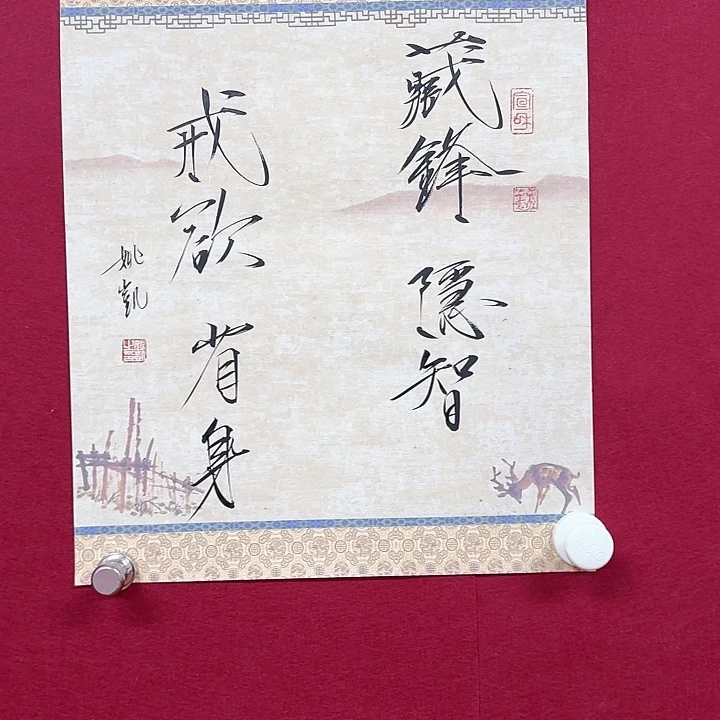 藏鋒隱智
戒欲省身
姚凱